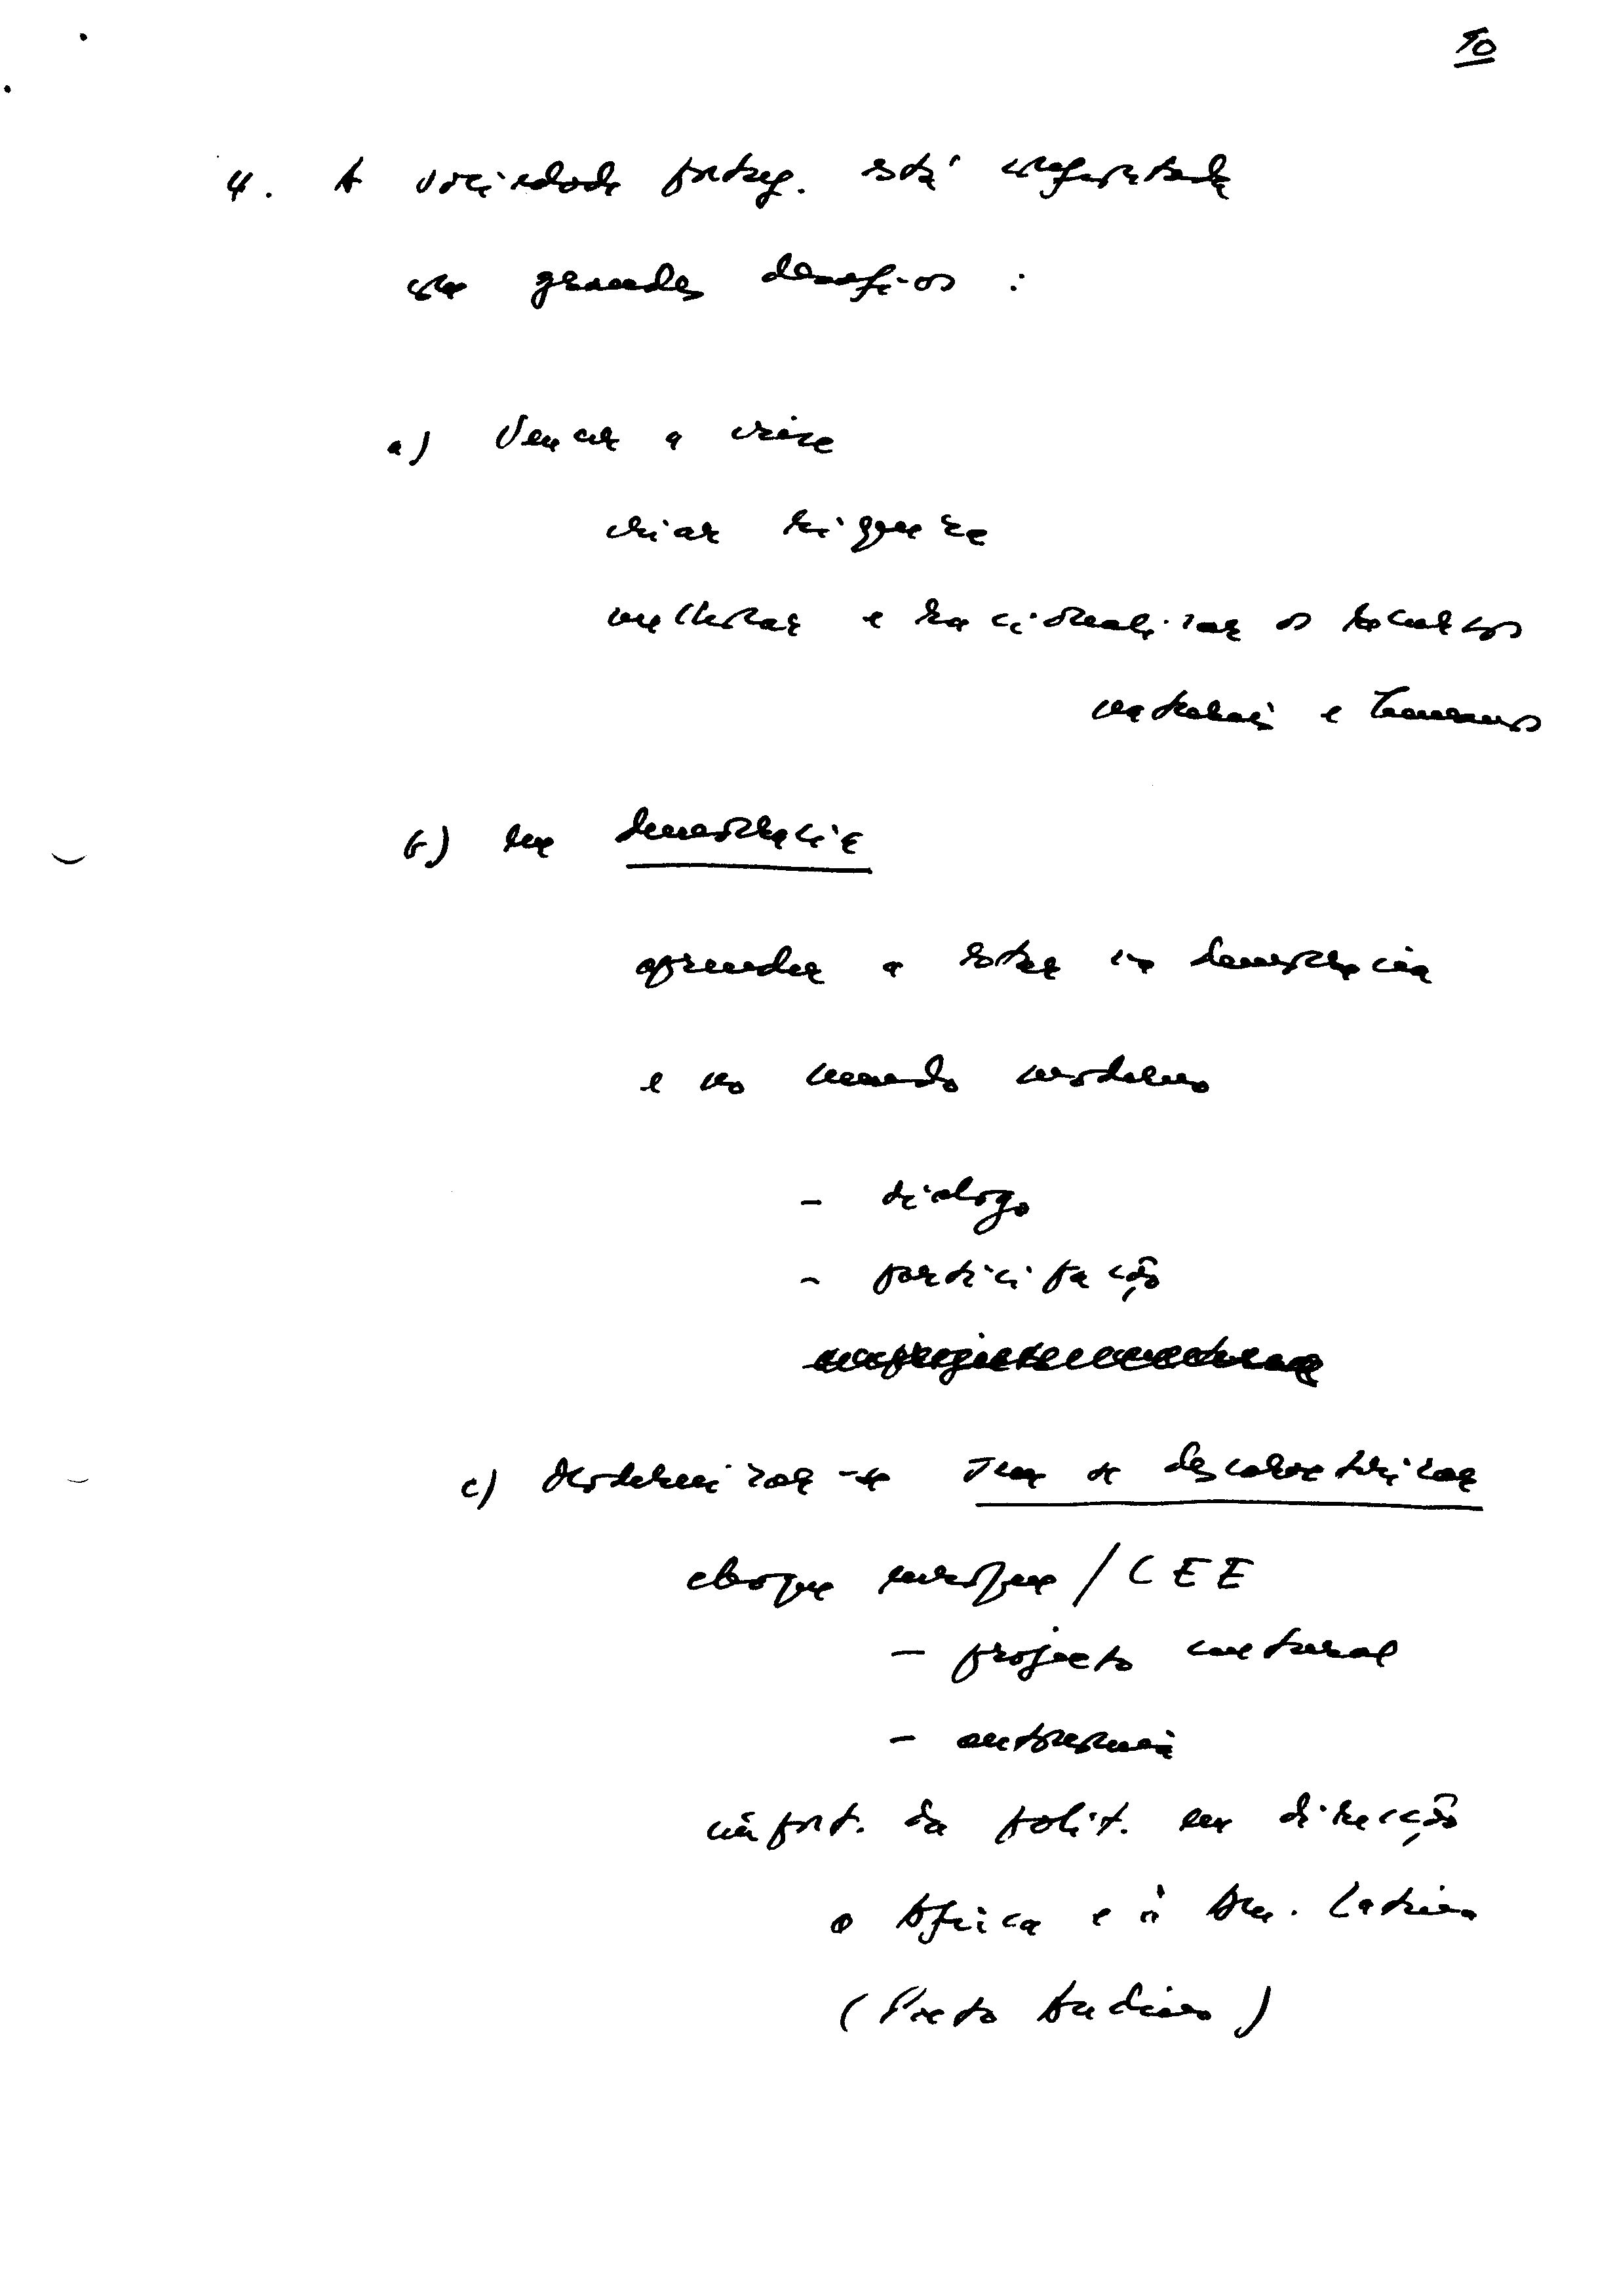 10
4. A sociedade portug. está confrontada
com grandes desafios :
a) Vencer a crise
criar riqueza
melhorar e racionalizar os recursos
materiais e humanos
b) em democracia
aprender a estar em democracia
e no mundo moderno
- dialogo
- participação
c) Modernizar-se sem se descaracterizar
choque europeu / CEE
- projecto cultural
- autonomia
import. da polit. em direcção
a Africa e à Am. Latina
(Pacto Andino)